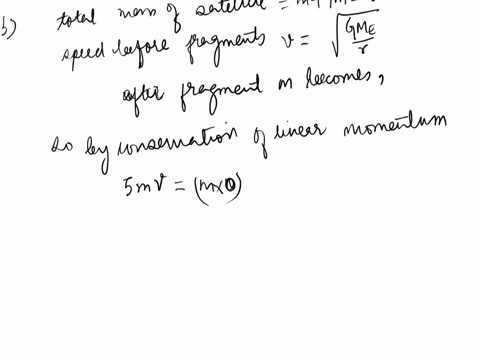 b) total mass of satellite =
speed before fragments v = √(GM_E/r)
after fragment m becomes,
so by conservation of linear momentum
5mv = (m×0)